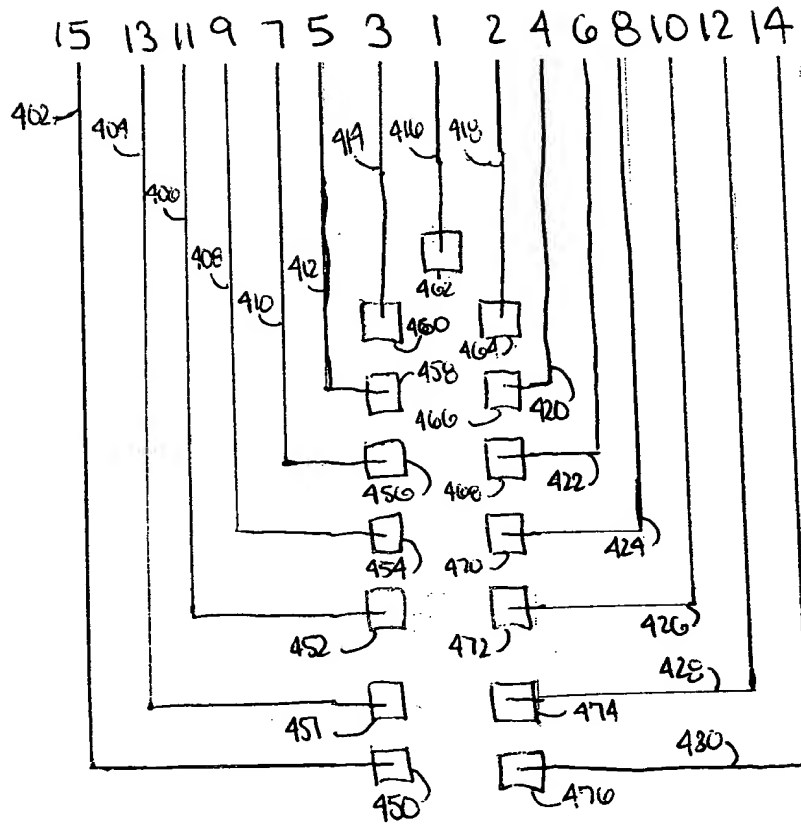 15 13 11 9 7 5 3 1 2 4 6 8 10 12 14
402 404 414 416 418
406
408 412 462
410 460 464
458
466 420
456 468 422
454 470 424
452 472 426
428
451 474
430
450 476